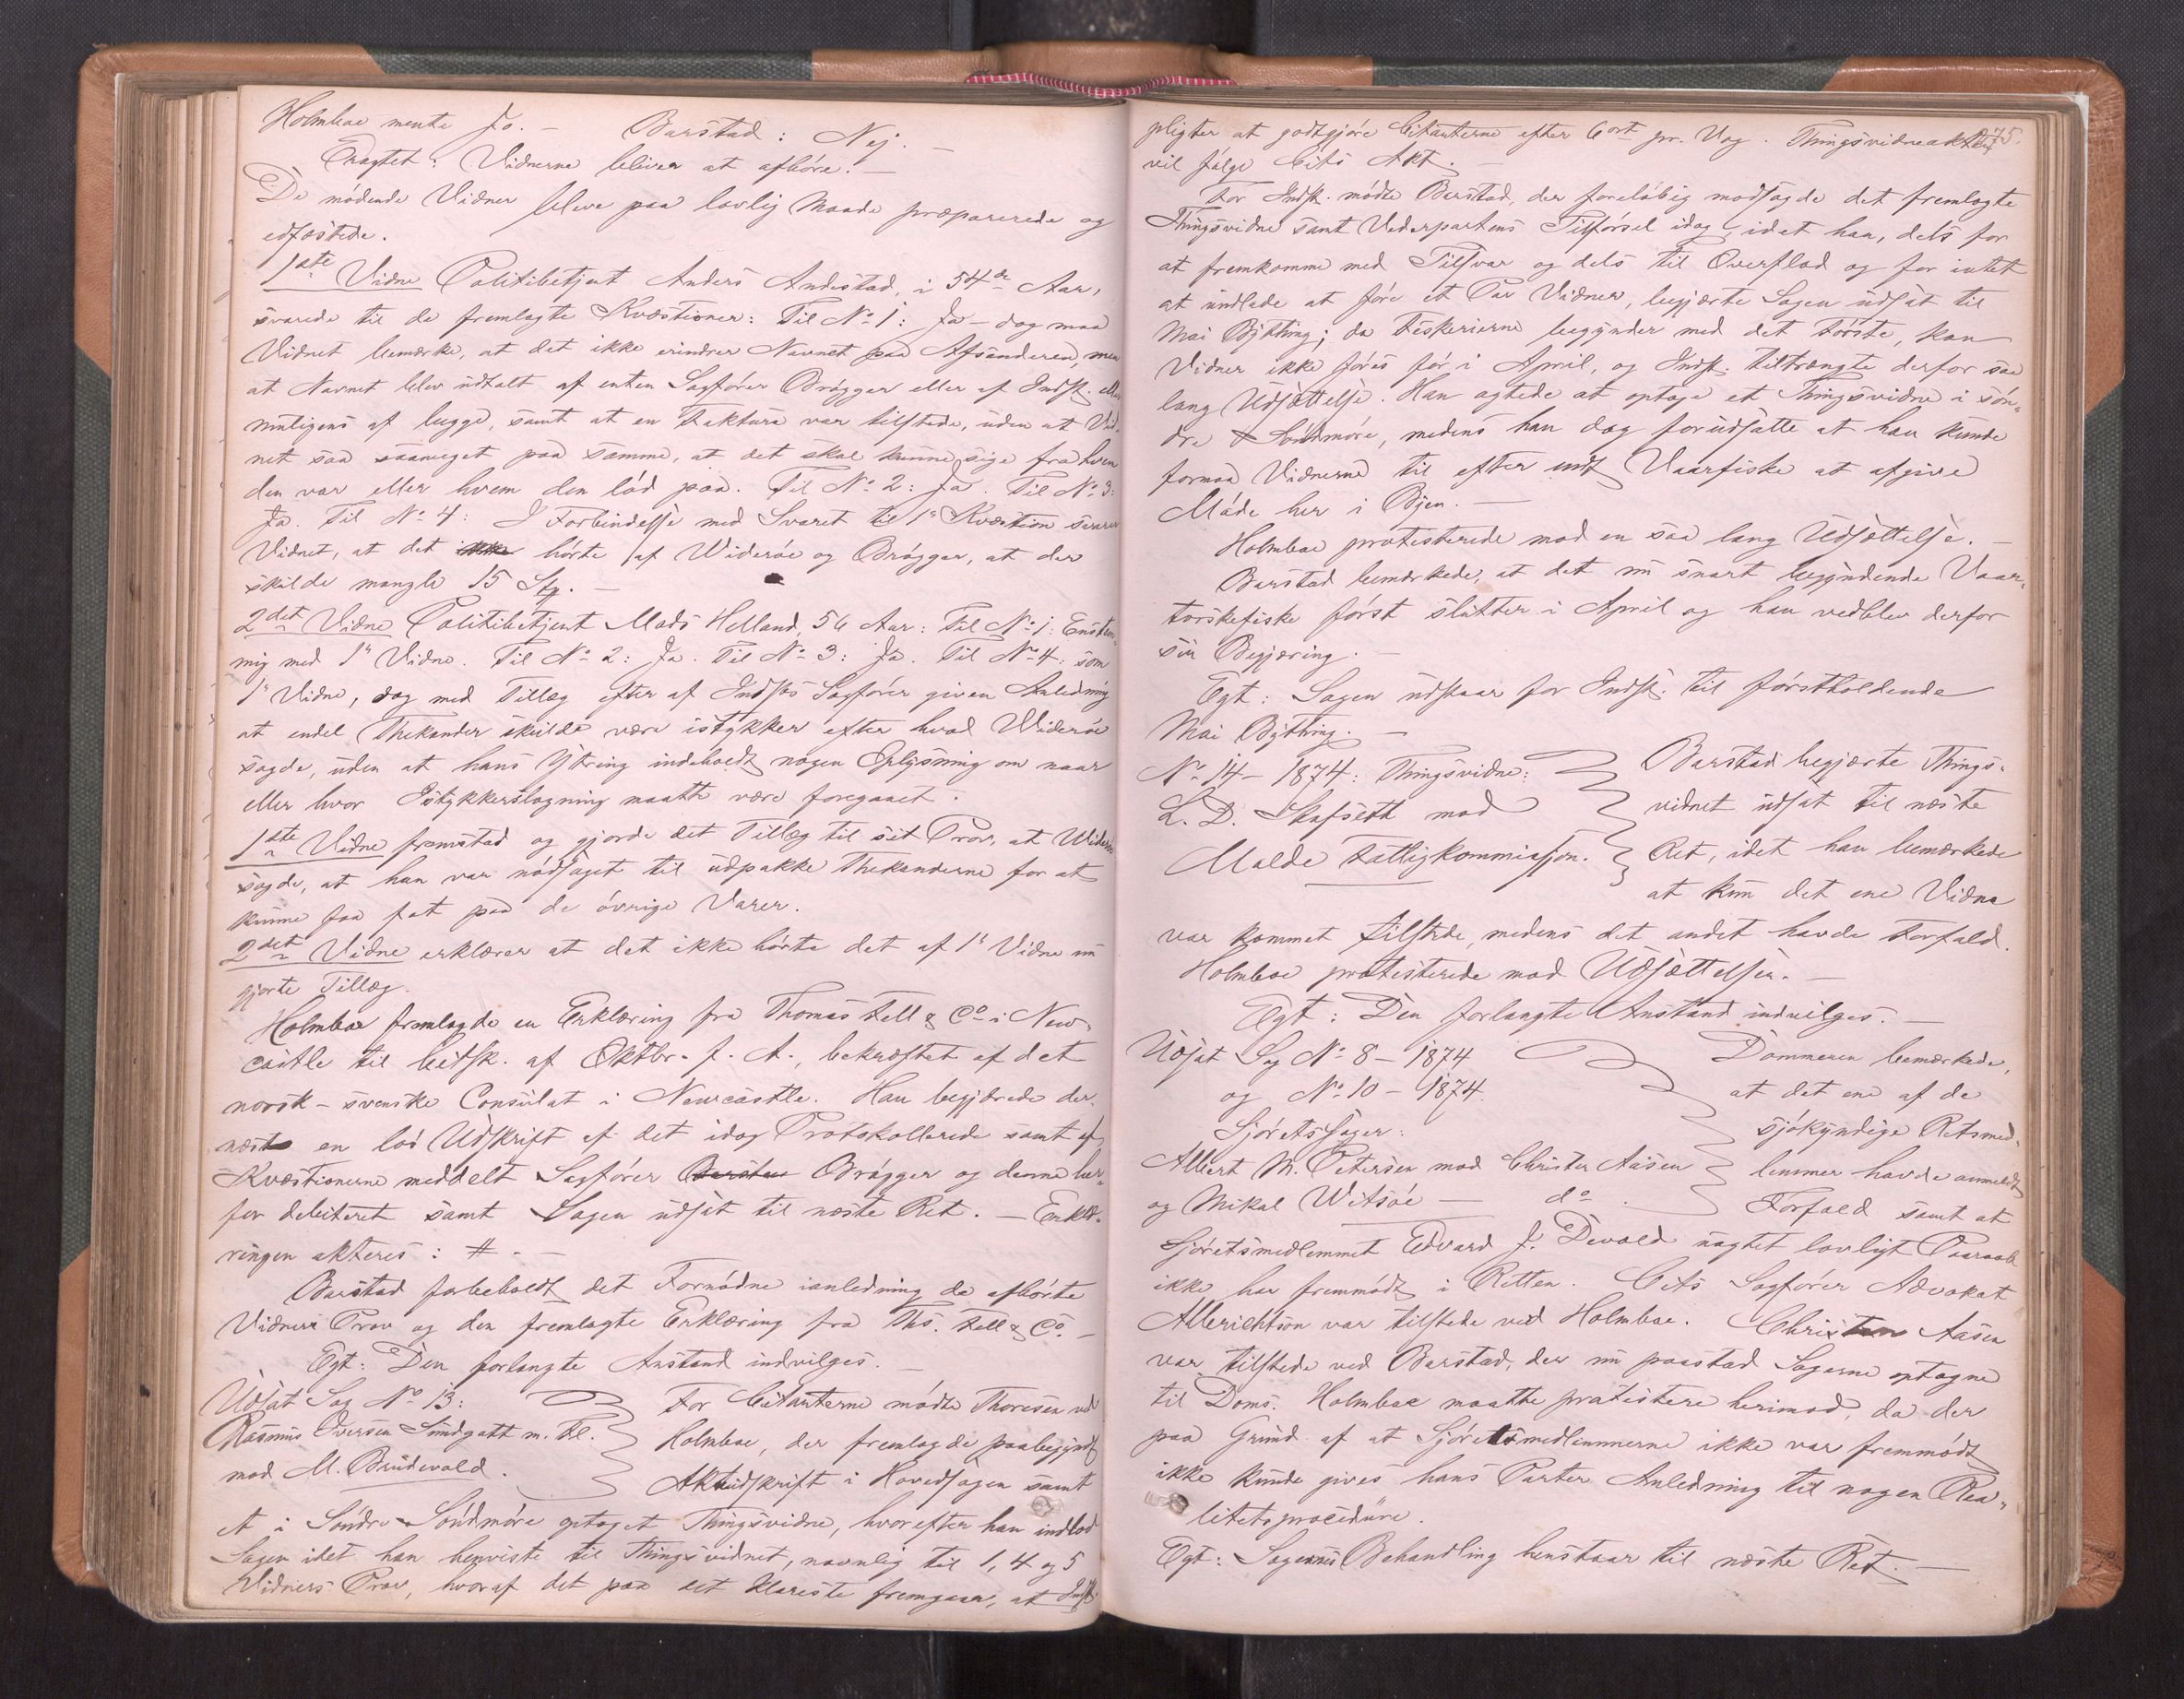 Holmboe mente Jo. – Barstad: Nej. –
Eragtet: Vidnerne bliver at afhøre. –
De mødende Vidner bleve paa lovlig Maade præparerede og
edfæstede.
1ste Vidne Politibetjent Anders Andestad, i 54de Aar,
svarede til de fremlagte Kvæstioner: Til No 1: Ja – dog maa
Vidnet bemærke, at det ikke erindrer Navnet paa Afsenderen, men
at Navnet blev udtalt af enten Sagfører Brøgger eller af Indst. eller
muligens af begge, samt at en Faktura var tilstede, uden at Vid-
net saa saameget paa samme, at det skal kunne sige fra hvem
den var eller hvem den lød paa. Til No 2: Ja. Til No 3:
Ja. Til No 4: I Forbindelse med Svaret til 1s Kvæstion svarer
Vidnet, at det ikke hørte af Widerøe og Brøgger, at der
skulde mangle 15 Stg. –
2det Vidne Politibetjent Mads Helland, 56 Aar: Til No 1: Enstem-
mig med 1s Vidne. Til No 2: Ja. Til No 3: Ja. Til No 4: som
1s Vidne, dog med Tillæg efter af Indst's Sagfører given Anledning
at endel Thekander skulde være istykker efter hvad Widerøe
sagde, uden at hans Ytring indeholdt nogen Oplysning om naar
eller hvor Istykkerslagning maatte være foregaaet.
1ste Vidne fremstod og gjorde det Tillæg til sit Prov, at Widerøe
sagde, at han var nødsaget til udpakke Thekanderne for at
kunne faa fat paa de øvrige Varer.
2det Vidne erklærer at det ikke hørte det af 1s Vidne nu
gjorte Tillæg.
Holmboe fremlagde en Erklæring fra Thomas Fell & Co i New-
castle til Citsk. af Oktbr. f. A., bekræftet af det
norsk-svenske Consulat i Newcastle. Han begjærede der-
næst en lod Udskrift af det idag Protokollerede samt af
Kvæstionerne meddelt Sagfører Barstad Brøgger og denne her-
for debiteret samt Sagen udsat til næste Ret. – Erklæ-
ringen akteres: # . –
Barstad forbeholdt det Fornødne ianledning de afhørte
Vidners Prov og den fremlagte Erklæring fra Ths. Fell & Co. –
Egt: Den forlangte Anstand indvilges. –
Udsat Sag No 13:
Rasmus Iversen Sundgott m. Fl.
mod M. Brudevold.
For Citanterne mødte Thoresen ved
Holmboe, der fremlagde paabegyndt
Aktudskrift i Hovedsagen samt
et i Søndre Søndmøre optaget Thingsvidne, hvorefter han indlod
Sagen idet han henviste til Thingsvidnet, navnlig til 1, 4 og 5
Vidners Prov, hvoraf det paa det klareste fremgaar, at Indst.
75.
pligter at godtgjøre Citanterne efter 6 ort pr. Vog. Thingsvidneakten
vil følge Cits Akt. –
For Indst. mødte Barstad, der foreløbig modsagde det fremlagte
Thingsvidne samt Vederpartens Tilførsel idag, idet han, dels for
at fremkomme med Tilsvar og dels til Overflod og for intet
at undlade at føre et Par Vidner, begjærte Sagen udsat til
Mai Bything; da Fiskerierne begynder med det Første, kan
Vidner ikke føres før i April, og Indst. tiltrængte derfor saa
lang Udsættelse. Han agtede at optage et Thingsvidne i Søn-
dre Søndmøre, medens han dog forudsatte at han kunde
formaa Vidnerne til efter endt Vaarfiske at afgive
Møde her i Byen. –
Holmboe protesterede mod en saa lang Udsættelse. –
Barstad bemærkede, at det nu snart begyndende Vaar-
torskefiske først slutter i April og han vedblev derfor
sin Begjæring. –
Egt: Sagen udstaar for Indst. til førstholdende
Mai Bything. –
No 14 – 1874: Thingsvidne:
L. D. Skafseth mod
Molde Fattigkommission.
Barstad begjærte Things-
vidnet udsat til næste
Ret, idet han bemærkede
at kun det ene Vidne
var kommet tilstede, medens det andet havde Forfald.
Holmboe protesterede mod Udsættelsen. –
Egt: Den forlangte Anstand indvilges. –
Udsat Sag No 8 – 1874
og No 10 – 1874.
Sjøretssager:
Albert M. Petersen mod Christen Aasen
og Mikal Witsøe – do.
Dommeren bemærkede,
at det ene af de
sjøkyndige Retsmed-
lemmer havde anmeldt
Forfald samt at
Sjøretsmedlemmet Edvard J. Devold uagtet lovligt Paaraab
ikke har fremmødt i Retten. Cits Sagfører Advokat
Albrichtson var tilstede ved Holmboe. Christen Aasen
var tilstede ved Barstad, der nu paastod Sagerne optagne
til Doms. Holmboe maatte protestere herimod, da der
paa Grund af at Sjøretsmedlemmerne ikke var fremmødt
ikke kunde gives hans Parter Anledning til nogen Rea-
litetsprocedure.
Egt: Sagernes Behandling henstaar til næste Ret. –